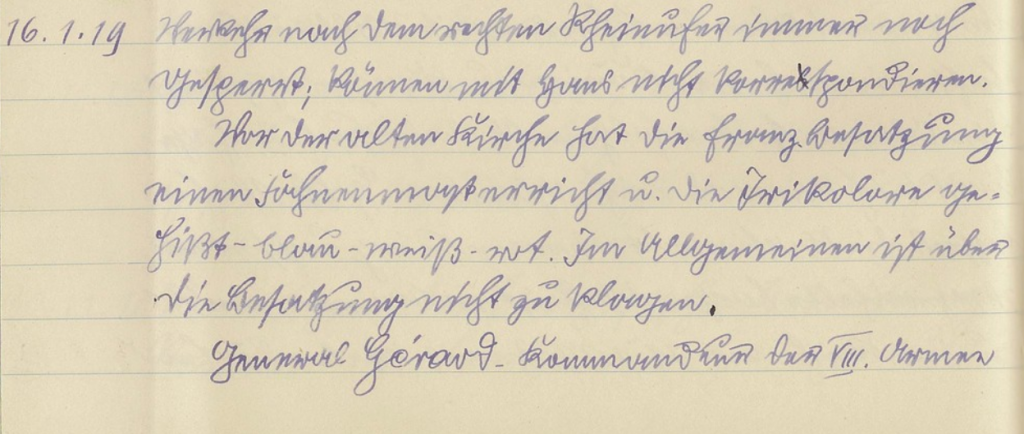 16.1.19 Verkehr nach dem rechten Rheinufer immer noch
gesperrt; können mit Hans nicht korrespondieren.
Vor der alten Kirche hat die franz. Besatzung
einen Fahnenmast erricht u. die Trikolore ge-
hißt - blau - weiß - rot. Im Allgemeinen ist über
die Besatzung nicht zu klagen.
General Gérard - Kommandeur der VIII. Armee